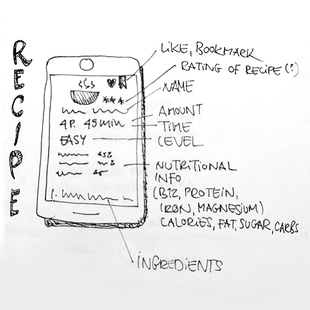 RECIPE
LIKE, BOOKMARK
RATING OF RECIPE(?)
NAME
4P. 45 min
AMOUNT
TIME
EASY
LEVEL
NUTRITIONAL
INFO
(B12, PROTEIN,
IRON, MAGNESIUM)
CALORIES, FAT, SUGAR, CARBS
INGREDIENTS